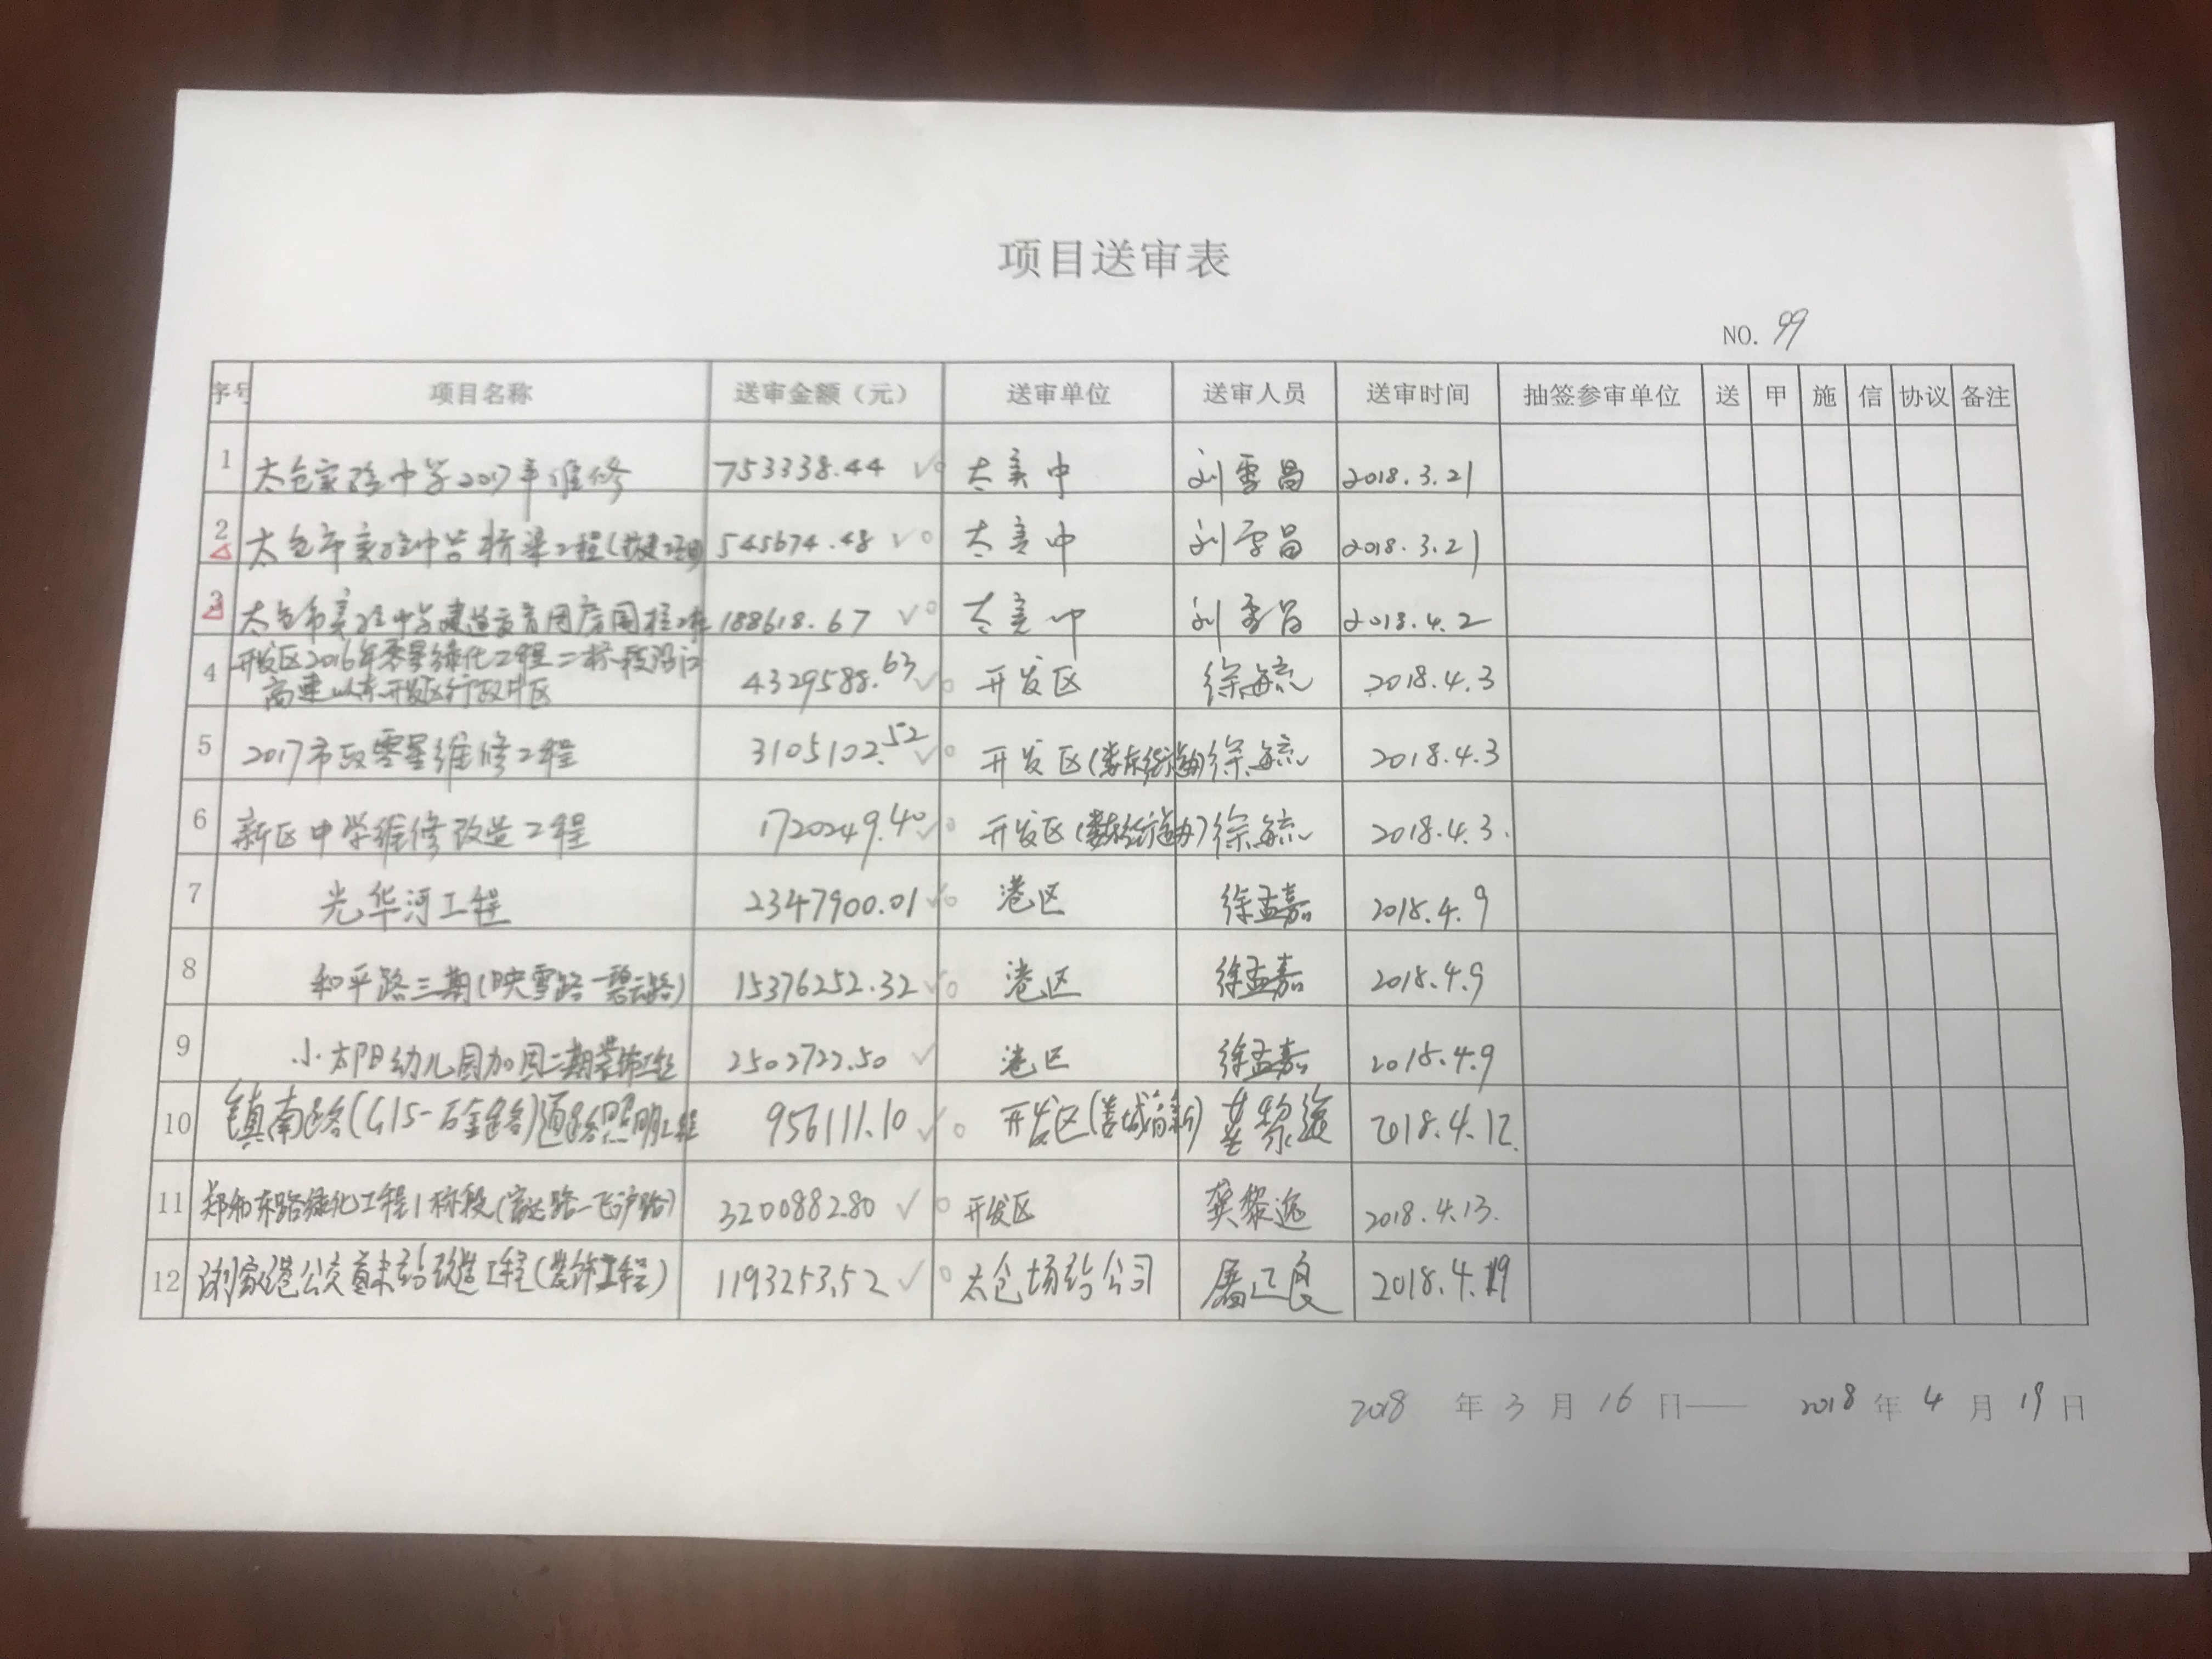 项目送审表
NO. 99
序号 项目名称 送审金额（元） 送审单位 送审人员 送审时间 抽签参审单位 送 甲 施 信 协议 备注
1 太仓实验中学2017年维修 753338.44 太实中 刘雪昌 2018.3.21
2 太仓市实验中学桥梁工程 545674.48 太实中 刘雪昌 2018.3.21
3 太仓市实验中学建造教育用房围栏工程 188618.67 太实中 刘雪昌 2018.4.2
开发区2016年零星绿化工程二标段沿江
4 高速以东开发区行政片区 4329588.63 开发区 徐毓 2018.4.3
5 2017市政零星维修工程 3105102.52 开发区(娄东街道办) 徐毓 2018.4.3
6 新区中学维修改造工程 1720249.40 开发区(娄东街道办) 徐毓 2018.4.3.
7 光华河工程 2347900.01 港区 徐孟嘉 2018.4.9
8 和平路三期(映雪路-碧云路) 15376252.32 港区 徐孟嘉 2018.4.9
9 小太阳幼儿园加固二期装饰工程 2502722.50 港区 徐孟嘉 2018.4.9
10 镇南路(G15-石金路)道路照明工程 956111.10 开发区 龚黎逸 2018.4.12.
11 郑和东路绿化工程1标段 32008828.0 开发区 龚黎逸 2018.4.13.
12 浏家港公交首末站改造工程(装饰工程) 1193253.52 太仓场站公司 屠正良 2018.4.19
2018 年 3 月 16 日—— 2018 年 4 月 19 日